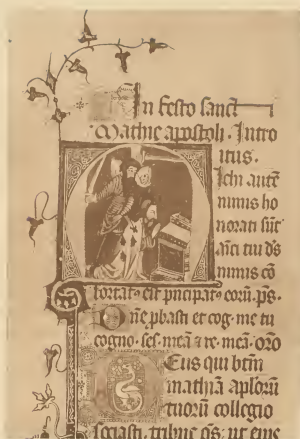 In festo sanct
Mathie apostoli. Intro
itus.
ichi autē
nimis ho
norati sūt
amici tui ds
nimis cō
fortat⁹ est pncipat⁹ eorū. ps.
Dne pbasti et cog. me tu
cogno. ses. meā
Deus qui btm
mathiā aplorū
tuorū collegio
sociasti. tribue